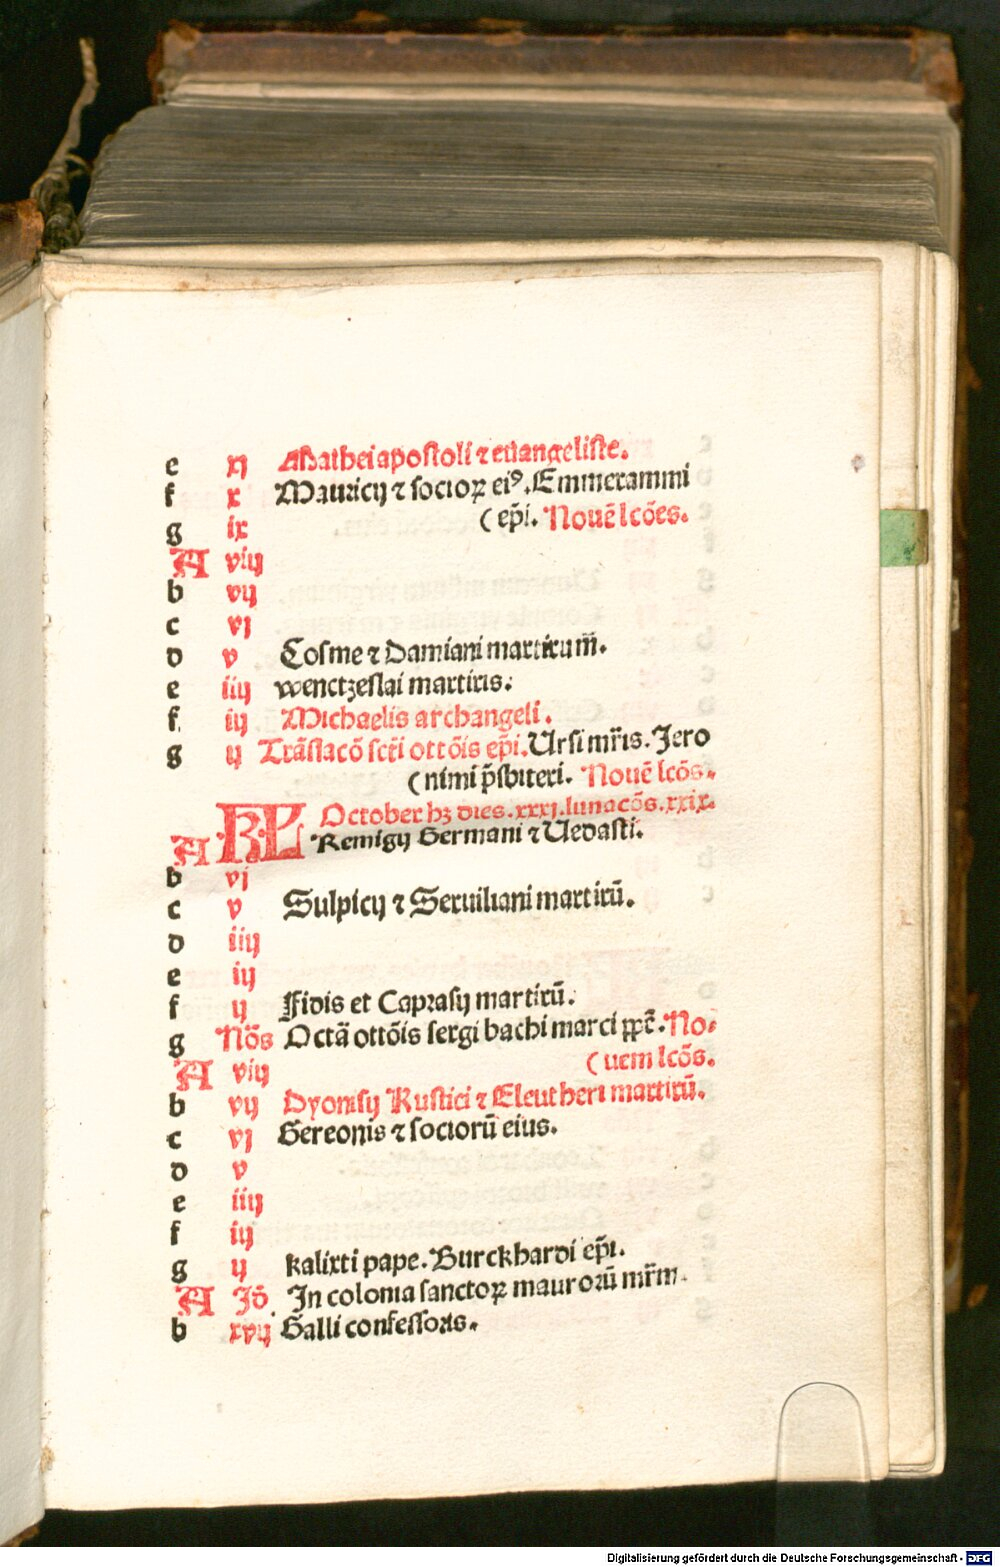 e xj Mathei apostoli ⁊ euangeliste.
f x Mauricij ⁊ socioꝝ eiꝰ. Emmerammi
g ix ( ep̄i. Nouē lcōes.
A viij
b vij
c vj
d v Cosme ⁊ Damiani martirum̄.
e iiij wenctzeslai martiris.
f iij Michaelis archangeli.
g ij Trāslacō scti ottōis ep̄i. Ursi mr̄is. Jero
( nimi p̄sbiteri. Nouē lcōs.
KL October hꝫ dies. xxxj. lunacōs. xxix.
A Remigij Germani ⁊ Uedasti.
b vj
c v Sulpicij ⁊ Seruiliani martirū.
d iiij
e iij
f ij Fidis et Caprasij martirū.
g Nōs Octā ottōis sergi bachi marci ꝑꝑē. No-
A viij ( uem lcōs.
b vij Dyonisij Rustici ⁊ Eleutheri martirū.
c vj Gereonis ⁊ sociorū eius.
d v
e iiij
f iij
g ij kalixti pape. Burckhardi ep̄i.
A Jd̄ In colonia sanctoꝝ maurorū mr̄m.
b xvij Galli confessoris.
Digitalisierung gefördert durch die Deutsche Forschungsgemeinschaft - DFG